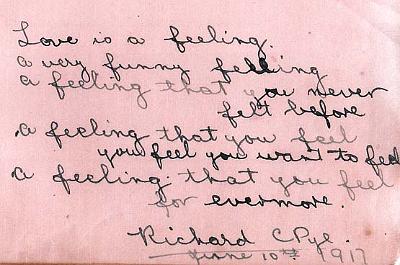 Love is a feeling.
a very funny felling
a feeling that you never
felt before
a feeling that you feel
you feel you want to feel
a feeling that you feel
for evermore.
Richard C Pye.
June 10th 1917